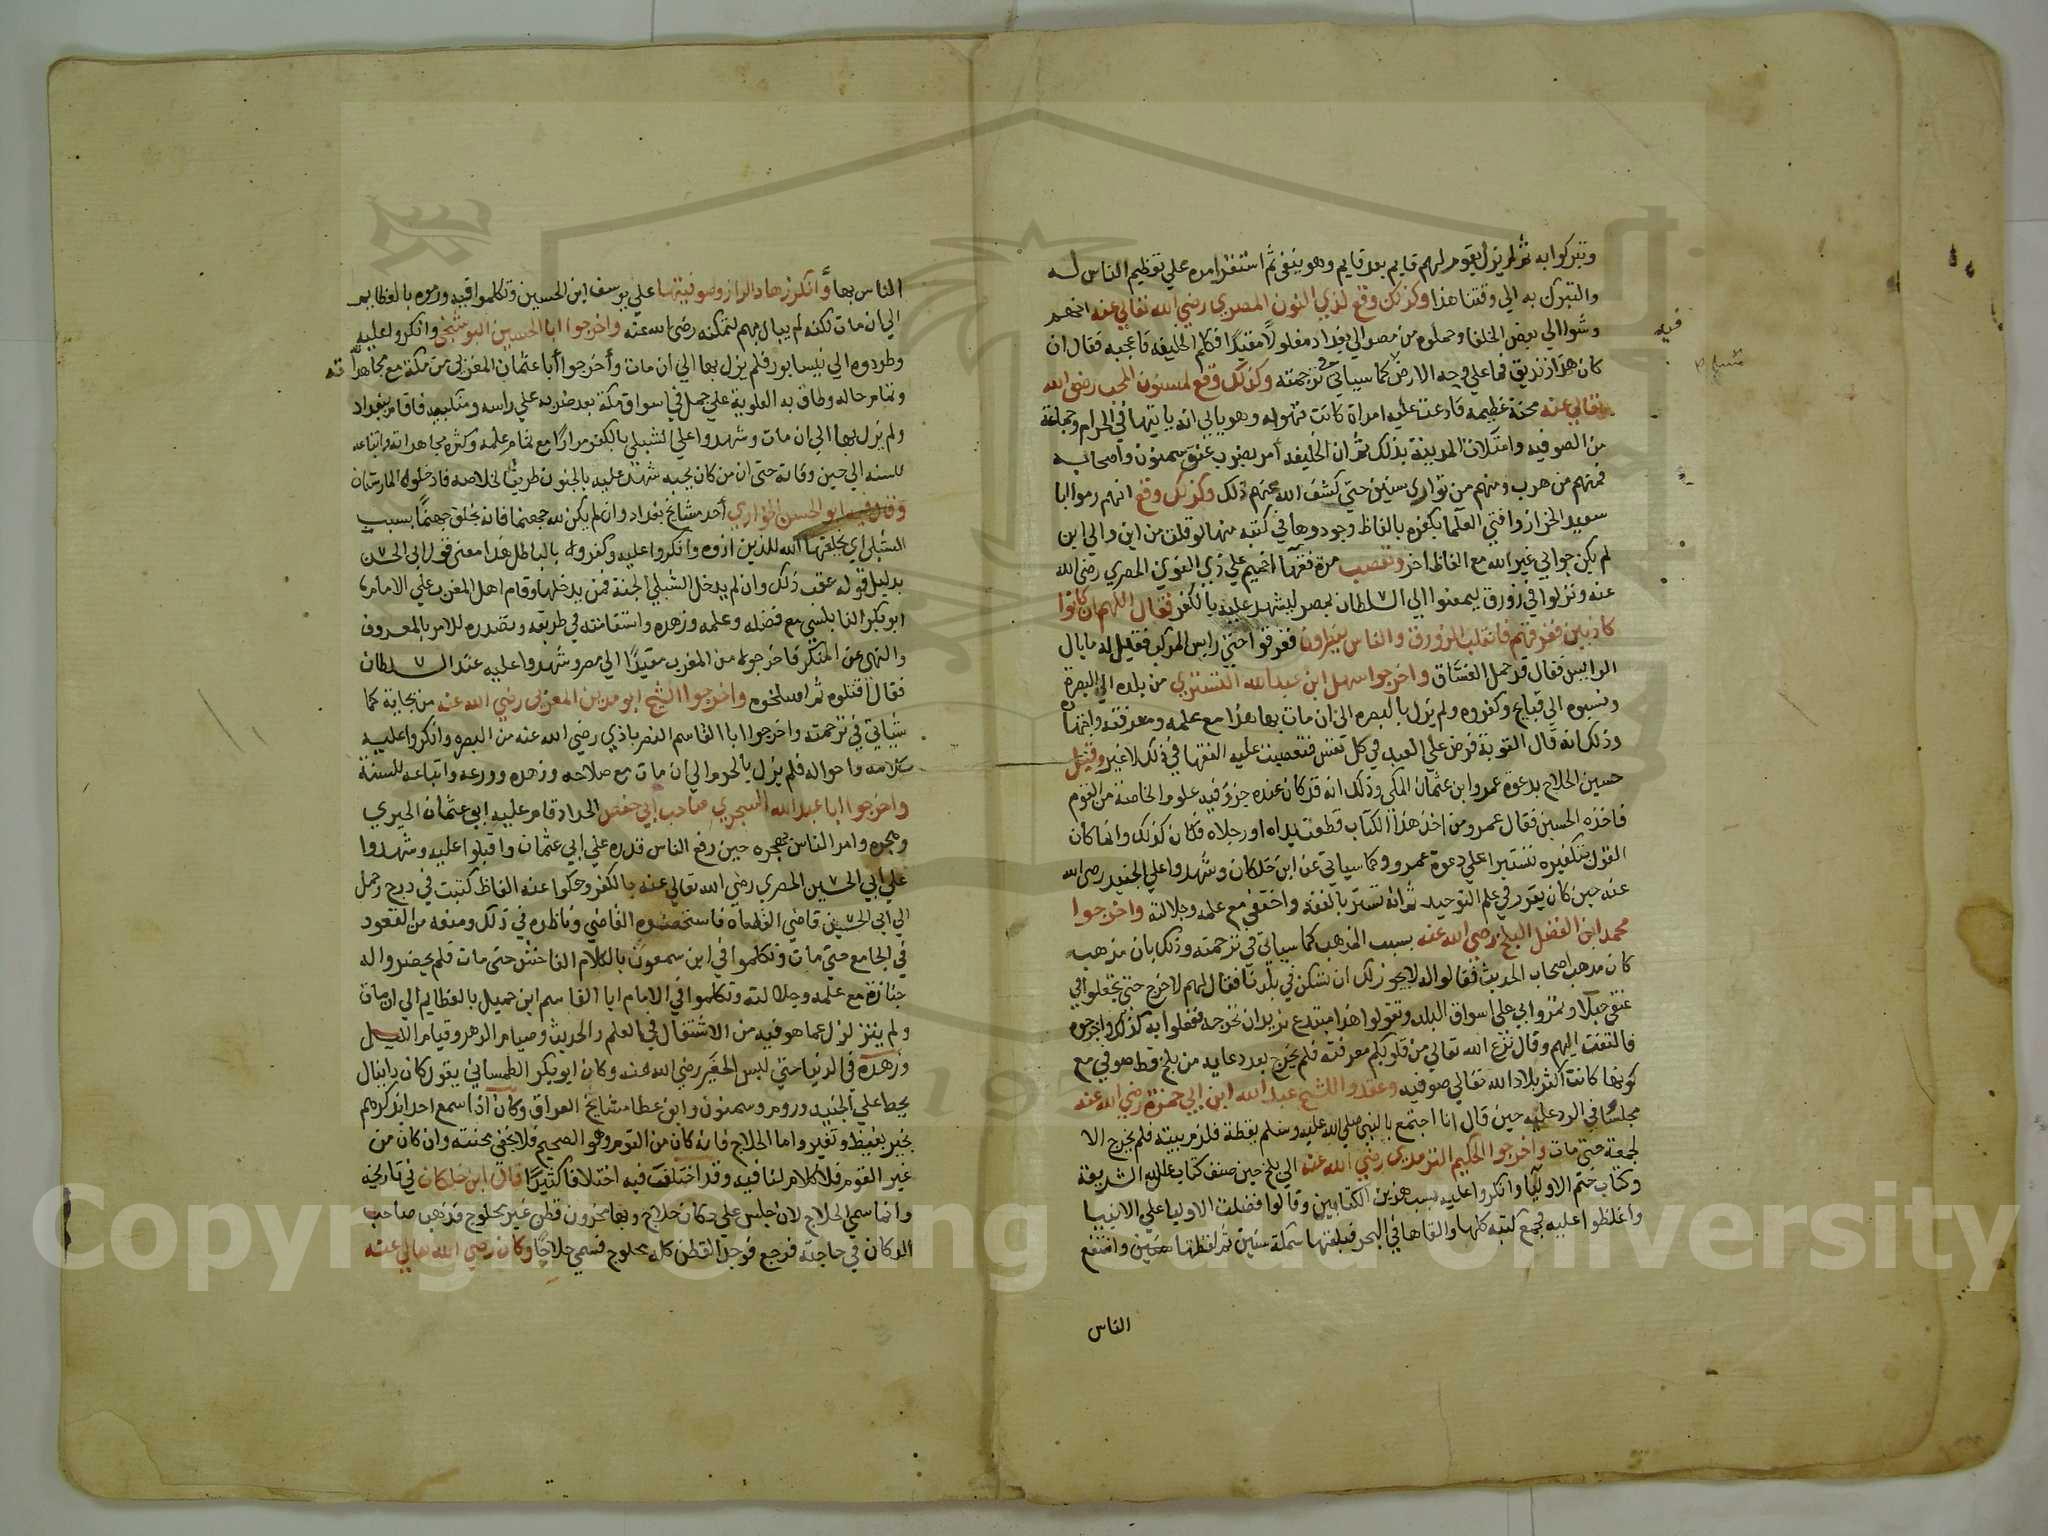 وتبركوا به ثم لم يزل يقوم لهم قايم بعد قايم وهو ينفي ثم استقر امره علي تعظيم الناس له
والتبرك به الي وقتنا هذا وكذلك وقع لذي النون المصري رضي الله تعالي عنه انهم
وشوا الي بعض الخلفا وحملوه من مصر الي بغداد مغلولا مقيدا فكلم الخليفة فاعجبه فقال ان
فيه
كان هذا زنديق فما علي وجه الارض كما سياتي في ترجمته وكذلك وقع لسمنون المحب رضي الله
تعالي عنه محنة عظيمه فادعت عليه امراة كانت تهواه وهو يابي انه ياتيها في الحرام وجماعة
من الصوفيه وامتلات المدينة بذلك ثم ان الخليفه أمر بضرب عنق سمنون واصحابه
فمنهم من هرب ومنهم من تواري سنين حتي كشف الله عنهم ذلك وكذلك وقع انهم رموا ابا
سعيد الخراز وافتي العلما بكفره بالفاظ وجدوها في كتبه منها لو قلت من اين والي اين
لم يكن جوابي غير الله مع الفاظ اخر وتعصب مرة فقهآ اخميم علي ذي النون المصري رضي الله
عنه ونزلوا في زورق ليمضوا الي السلطان بمصر ليشهد عليه بالكفر فقال اللهم ان كانوا
كاذبين فغرقهم فانقلب الزورق والناس ينظرون فغرقوا حتي رايس المركب فقيل له ما بال
الرايس فقال قد حمل الفساق واخرجوا سهل ابن عبد الله التستري من بلده الي البصرة
ونسبوه الي قبايح وكفروه ولم يزل بالبصره الي ان مات بها هذا مع علمه ومعرفته واجتهاده
وذلك انه قال التوبة فرض علي العبد في كل نفس فتعصبت عليه الفقها في ذلك لا غير وقتل
حسين الحلاج بدعوة عمرو ابن عثمان المكي وذلك انه قد كان عنده جزؤ فيه علوم الخاصة من القوم
فاخذه الحسين فقال عمرو من اخذ هذا الكتاب قطعت يداه او رجلاه فكان كذلك وانما كان
القول بتكفيره تسترا علي دعوة عمرو وكما سياتي عن ابن خلكان وشهدوا علي الجنيد رضي الله
عنه حين كان يقرر في علم التوحيد ثم انه تستر بالفقه واختفي مع علمه وجلالته واخرجوا
محمد ابن الفضل البلخي رضي الله عنه بسبب المذهب كما سياتي في ترجمته وذلك بان مذهبه
كان مذهب اصحاب الحديث فقالوا له لا يجوز لك ان تسكن في بلدنا فقال لهم لا اخرج حتي تجعلوا في
عنقي حبلا وتمروا بي علي اسواق البلد وتقولوا هذا مبتدع نريد ان نخرجه ففعلوا به كذلك واخرجوه
فالتفت اليهم وقال نزع الله تعالي من قلوبكم معرفته فلم يخرج بعد دعايه من بلخ قط صوفي مع
كونها كانت اكثر بلاد الله تعالي صوفيه وعقدوا للشيخ عبد الله ابن ابي حمزة رضي الله عنه
مجلسا في الرد عليه حين قال انا اجتمع بالنبي صلي الله عليه وسلم يقظة فلزم بيته فلم يخرج الا
لجمعة حتي مات واخرجوا الحكيم الترمذي رضي الله عنه الي بلخ حين صنف كتاب علل الشريعة
وكتاب ختم الاوليآ وانكروا عليه بسبب هذين الكتابين وقالوا فضلت الاوليا علي الانبيا
واغلظوا عليه فجمع كتبه كلها والقاها في البحر فبلعتها سمكة سنين ثم لفظتها وانتفع
الناس
الناس بها وأنكر زهاد الراز وصوفيتها علي يوسف ابن الحسين وتكلموا فيه ورموه بالعظايم
الي ان مات لكنه لم يبال بهم لتمكنه رضي الله عنه واخرجوا ابا الحسين البوشنجي وانكروا عليه
وطردوه الي نيسابور فلم يزل بها الي ان مات وأخرجوا أبا عثمان المغربي من مكة مع مجاهداته
وتمام حاله وطاف به العلوية علي جمل في اسواق مكة بعد ضربه علي راسه ومنكبيه فاقام ببغداد
ولم يزل بها الي ان مات وشهدوا علي الشبلي بالكفر مرارا مع تمام علمه وكثرة مجاهداته واتباعه
للسنه الي حين وفاته حتي ان من كان يحبه شهد عليه بالجنون طريقا لخلاصه فادخلوه المارستان
وقال فيه ابو الحسن الخوارزمي أحد مشايخ بغداد وان لم يكن لله جهنما فانه يخلق جهنما بسبب
الشبلي اي يخلقها الله للذين اذوه وانكروا عليه وكفروه بالباطل هذا معني قول ابي الحسن
بدليل قوله عقب ذلك وان لم يدخل الشبلي الجنة فمن يدخلها وقام اهل المغرب علي الامام
ابو بكر النابلسي مع فضله وعلمه وزهده واستقامته في طريقه وتصدره للامر بالمعروف
والنهي عن المنكر فاخرجوه من المغرب مقيدا الي مصر وشهدوا عليه عند السلطان
فقال اقتلوه ثم اسلخوه واخرجوا الشيخ ابو مدين المغربي رضي الله عنه من بجاية كما
سياتي في ترجمته واخرجوا ابا القاسم النصرباذي رضي الله عنه من البصره وانكروا عليه
كلامه واحواله فلم يزل بالحرم الي ان مات مع صلاحه وزهده وورعه واتباعه للسنة
واخرجوا ابا عبد الله السجزي صاحب ابي حفص الحداد قام عليه ابي عثمان الحيري
وهجره وامر الناس بهجره حين رفع الناس قدره علي ابي عثمان واقبلوا عليه وشهدوا
علي ابي الحسين المصري رضي الله تعالي عنه بالكفر وحكوا عنه الفاظ كتبت في درج وحمل
الي ابي الحسين قاضي القضاة فاستحضره القاضي وناظره في ذلك ومنعه من القعود
في الجامع حتي مات وتكلموا في ابن سمعون بالكلام الفاحش حتي مات فلم يحضروا له
جنازة مع علمه وجلالته وتكلموا في الامام ابا القاسم ابن جميل بالعظايم الي ان مات
ولم يتزلزل عما هو فيه من الاشتغال في العلم والحديث وصيام الدهر وقيام الليل
وزهده في الدنيا حتي لبس الحصير رضي الله عنه وكان ابو بكر الطمساني يقول كان دانيال
يحط علي الجنيد وروم وسمنون وابن عطا مشايخ العراق وكان اذا سمع احدا يذكرهم
بخير يغيظ وتغير واما الحلاج فانه كان من القوم وهو الصحيح فلا يخفي محنته وان كان من
غير القوم فلا كلام لنا فيه وقد اختلفت فيه اختلافا كثيرا قال ابن خلكان في تاريخه
وانما سمي الحلاج لان جلس علي دكان حلاج وبها مخزون قطن غير محلوج فذهب صاحب
الدكان في حاجته فرجع فوجد القطن كله محلوج فسمي حلاجا وكان رضي الله تعالي عنه
Copyright © King Saud University